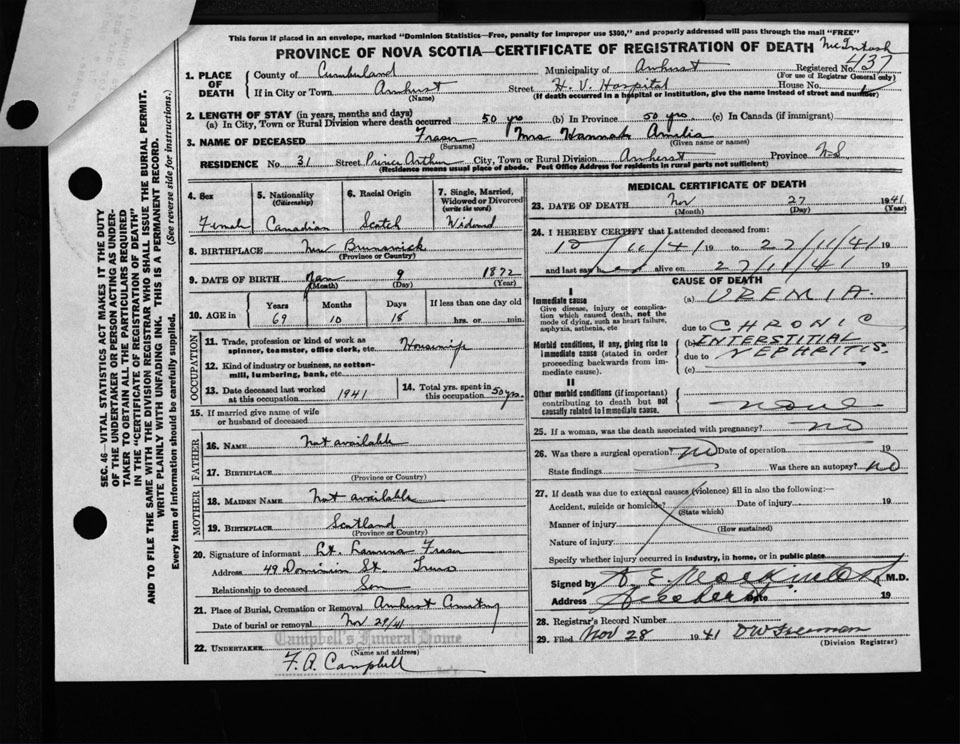 This form if placed in an envelope, marked "Dominion Statistics—Free, penalty for improper use $300," and properly addressed will pass through the mail "FREE"
PROVINCE OF NOVA SCOTIA—CERTIFICATE OF REGISTRATION OF DEATH McIntosh
Registered No. 437
(For use of Registrar General only)
1. PLACE OF DEATH
County of Cumberland Municipality of Amherst
If in City or Town Amherst Street H. V. Hospital House No.
(Name) (If death occurred in a hospital or institution, give the name instead of street and number)
2. LENGTH OF STAY (in years, months and days)
(a) In City, Town or Rural Division where death occurred 50 yrs (b) In Province 50 yrs. (c) In Canada (if immigrant)
3. NAME OF DECEASED Fraser Mrs Hannah Amelia
(Surname) (Given name or names)
RESIDENCE No. 31 Street Prince Arthur City, Town or Rural Division Amherst Province N.S
(Residence means usual place of abode. Post Office Address for residents in rural parts not sufficient)
4. Sex Female
5. Nationality (Citizenship) Canadian
6. Racial Origin Scotch
7. Single, Married, Widowed or Divorced (write the word) Widowed
8. BIRTHPLACE New Brunswick
(Province or Country)
9. DATE OF BIRTH Jan 9 1872
(Month) (Day) (Year)
10. AGE in Years Months Days If less than one day old
69 10 18 hrs. or min.
OCCUPATION
11. Trade, profession or kind of work as spinner, teamster, office clerk, etc. Housewife
12. Kind of industry or business, as cotten-mill, lumbering, bank, etc.
13. Date deceased last worked at this occupation 1941
14. Total yrs. spent in this occupation 50 yrs.
15. If married give name of wife or husband of deceased
FATHER
16. NAME Not available
17. BIRTHPLACE
(Province or Country)
MOTHER
18. MAIDEN NAME Not available
19. BIRTHPLACE Scotland
(Province or Country)
20. Signature of informant Lt. Fraser
Address 49 Dominion St. Truro
Relationship to deceased Son
21. Place of Burial, Cremation or Removal Amherst Cemetery
Date of burial or removal Nov 29/41
Campbell's Funeral Home
22. UNDERTAKER
(Name and address)
F. A. Campbell
MEDICAL CERTIFICATE OF DEATH
23. DATE OF DEATH Nov 27 1941
(Month) (Day)
24. I HEREBY CERTIFY that I attended deceased from:
10/11/41 19 to 27/11/41 19
and last saw her alive on 27/11/41 19
CAUSE OF DEATH
I
Immediate cause
Give disease, injury or complication which caused death, not the mode of dying, such as heart failure, asphyxia, asthenia, etc
(a) UREMIA.
due to CHRONIC
Morbid conditions, if any, giving rise to immediate cause (stated in order proceeding backwards from immediate cause).
(b) INTERSTITIAL
due to NEPHRITIS.
(c)
II
Other morbid conditions (if important) contributing to death but not causally related to immediate cause.
none
25. If a woman, was the death associated with pregnancy? no
26. Was there a surgical operation? no Date of operation 19
State findings Was there an autopsy? no
27. If death was due to external causes (violence) fill in also the following:—
Accident, suicide or homicide? Date of injury 19
(State which)
Manner of injury
(How sustained)
Nature of injury
Specify whether injury occurred in industry, in home, or in public place
Signed by M.D.
Address Date 19
28. Registrar's Record Number
29. Filed Nov 28 1941
(Division Registrar)
SEC. 46—VITAL STATISTICS ACT MAKES IT THE DUTY
OF THE UNDERTAKER OR PERSON ACTING AS UNDER-
TAKER TO OBTAIN ALL THE PARTICULARS REQUIRED
IN THE "CERTIFICATE OF REGISTRATION OF DEATH"
AND TO FILE THE SAME WITH THE DIVISION REGISTRAR WHO SHALL ISSUE THE BURIAL PERMIT.
WRITE PLAINLY WITH UNFADING INK. THIS IS A PERMANENT RECORD.
Every item of information should be carefully supplied. (See reverse side for instructions.)